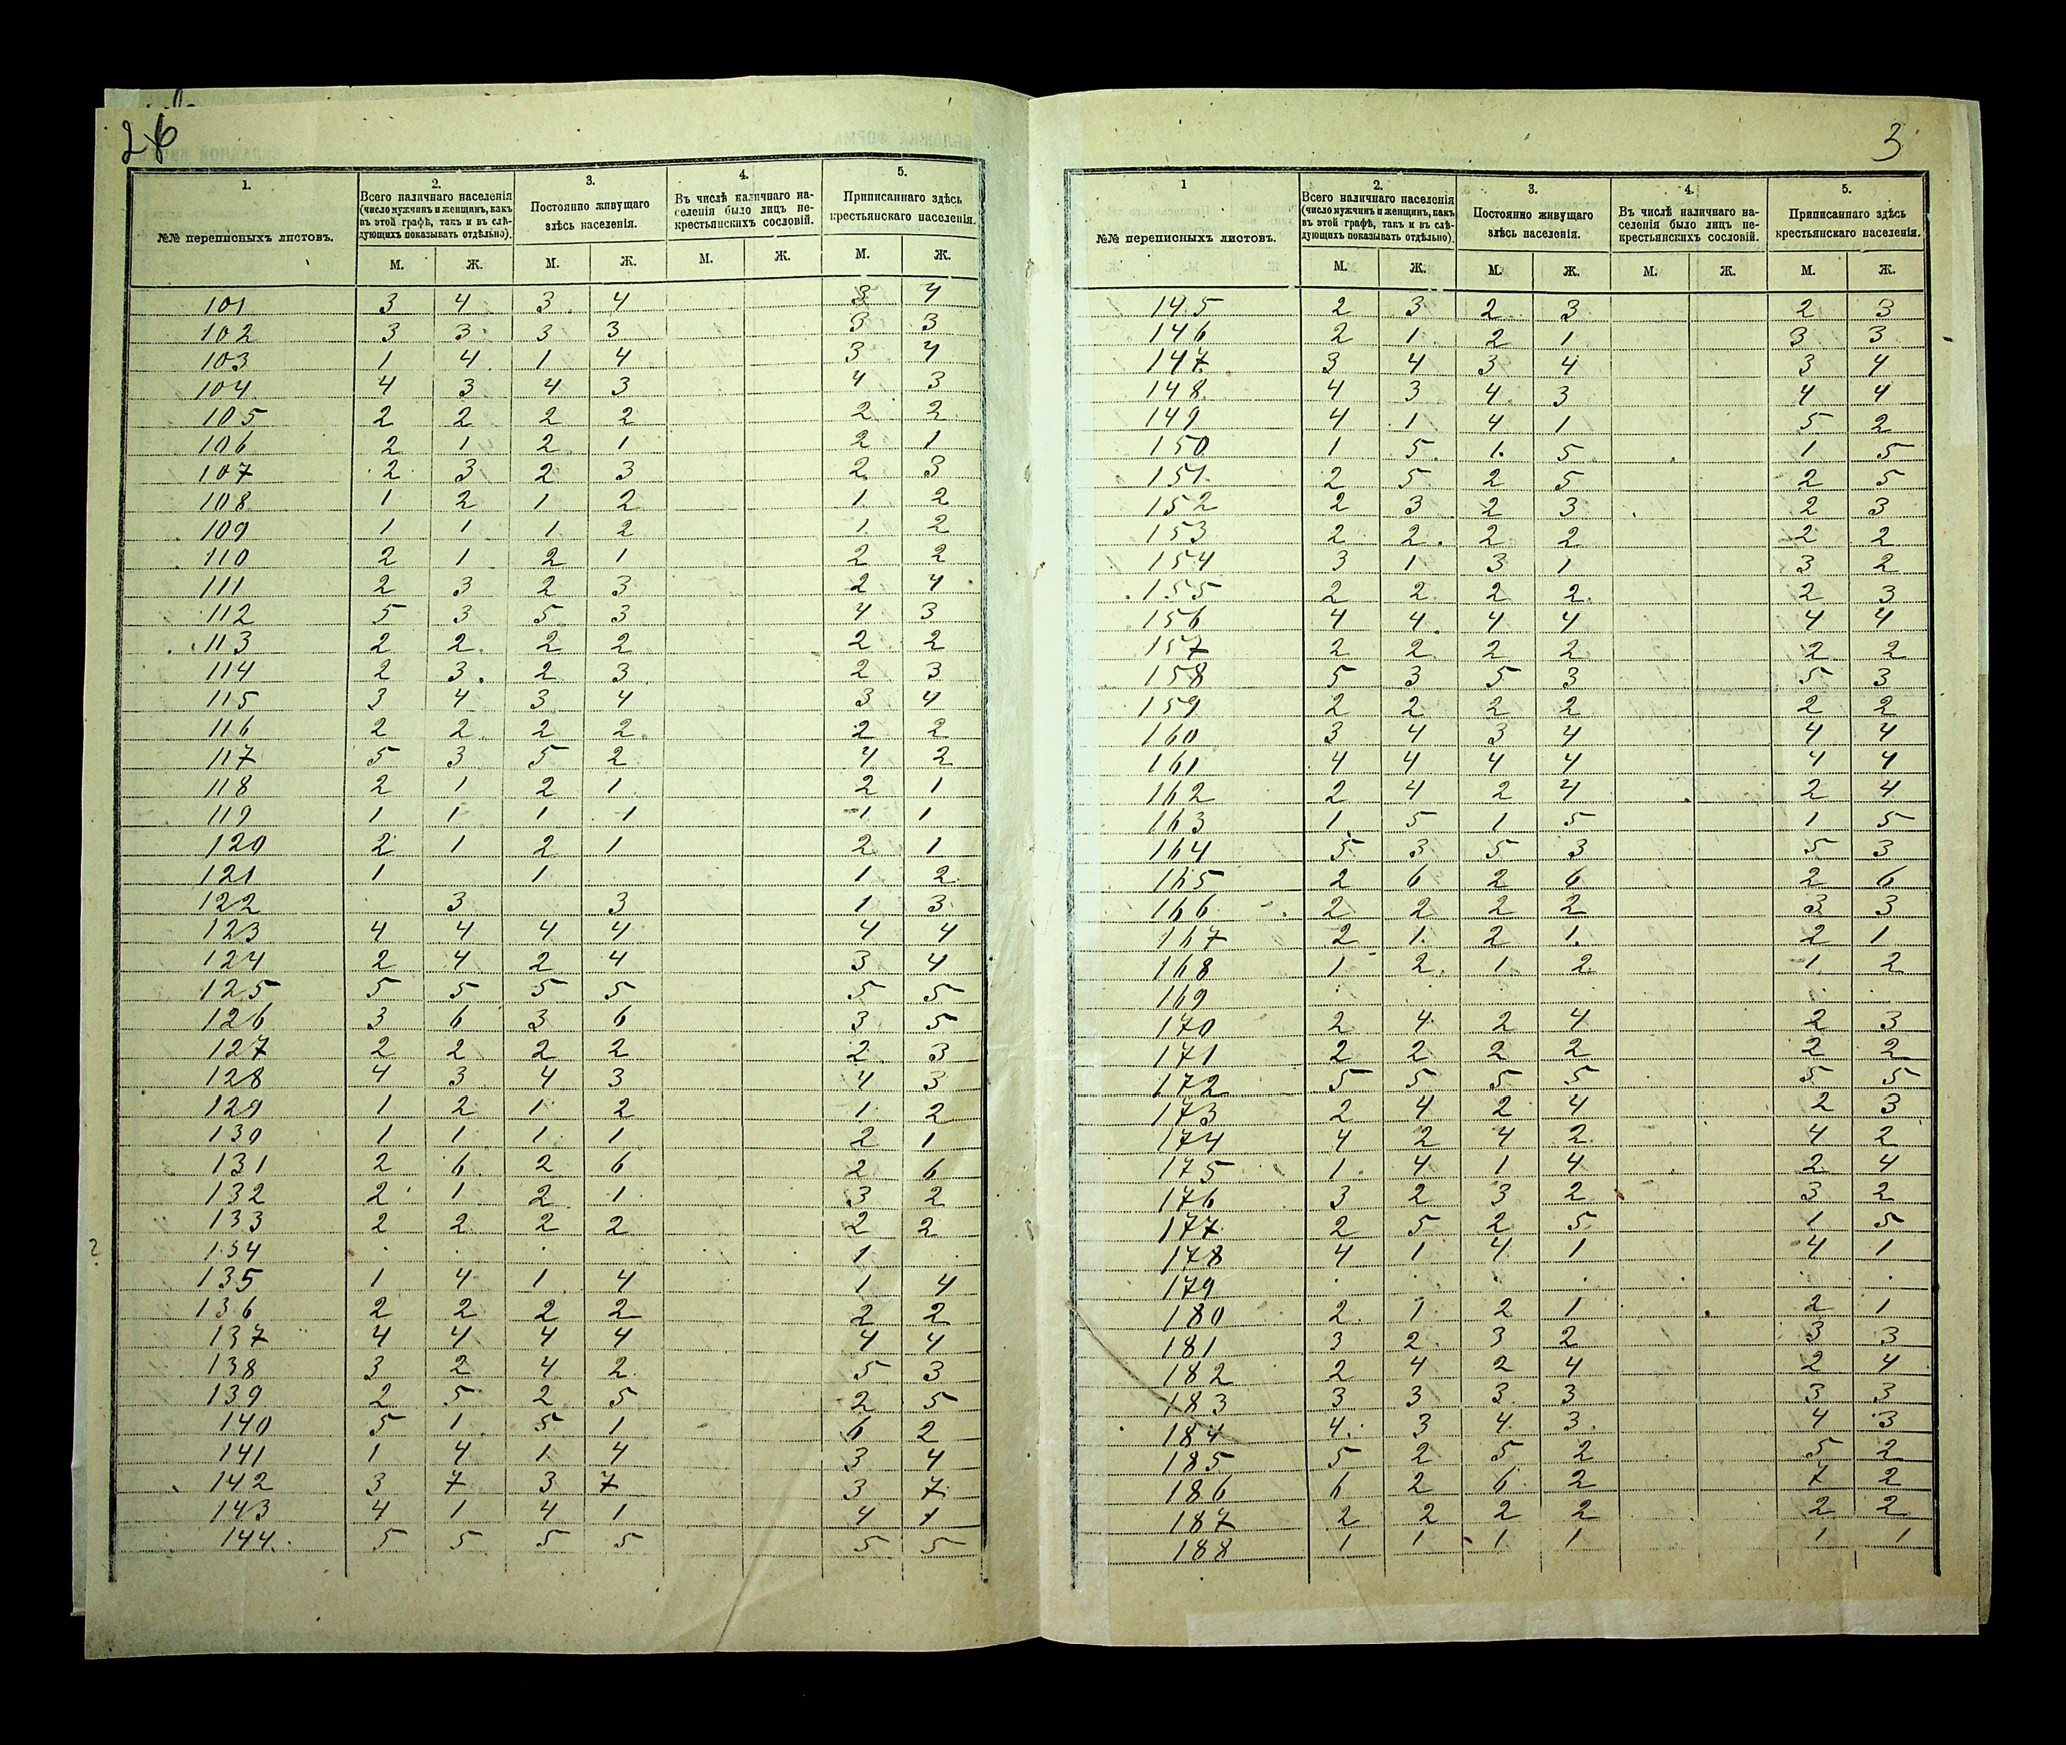 2
1. 2. 3. 4. 5.
№№ переписныхъ листовъ. Всего наличнаго населенія (число мужчинъ и женщинъ, какъ въ этой графѣ, такъ и въ слѣдующихъ показывать отдѣльно). Постоянно живущаго здѣсь населенія. Въ числѣ наличнаго населенія было лицъ некрестьянскихъ сословій. Приписаннаго здѣсь крестьянскаго населенія.
М. Ж. М. Ж. М. Ж. М. Ж.
101 3 4 3 4 3 4
102 3 3 3 3 3 3
103 1 4 1 4 3 4
104 4 3 4 3 4 3
105 2 2 2 2 2 2
106 2 1 2 1 2 1
107 2 3 2 3 2 3
108 1 2 1 2 1 2
109 1 1 1 2 1 2
110 2 1 2 1 2 2
111 2 3 2 3 2 4
112 5 3 5 3 4 3
113 2 2 2 2 2 2
114 2 3 2 3 2 3
115 3 4 3 4 3 4
116 2 2 2 2 2 2
117 5 3 5 2 4 2
118 2 1 2 1 2 1
119 1 1 1 1 1 1
120 2 1 2 1 2 1
121 1 1 1 2
122 3 3 1 3
123 4 4 4 4 4 4
124 2 4 2 4 3 4
125 5 5 5 5 5 5
126 3 6 3 6 3 5
127 2 2 2 2 2 3
128 4 3 4 3 4 3
129 1 2 1 2 1 2
130 1 1 1 1 2 1
131 2 6 2 6 2 6
132 2 1 2 1 3 2
133 2 2 2 2 2 2
? 134 . . . . . . 1 .
135 1 4 1 4 1 4
136 2 2 2 2 2 2
137 4 4 4 4 4 4
138 3 2 4 2 5 3
139 2 5 2 5 2 5
140 5 1 5 1 6 2
141 1 4 1 4 3 4
142 3 7 3 7 3 7
143 4 1 4 1 4 1
144 5 5 5 5 5 5
3
1 2. 3. 4. 5.
№№ переписныхъ листовъ. Всего наличнаго населенія (число мужчинъ и женщинъ, какъ въ этой графѣ, такъ и въ слѣдующихъ показывать отдѣльно). Постоянно живущаго здѣсь населенія. Въ числѣ наличнаго населенія было лицъ некрестьянскихъ сословій. Приписаннаго здѣсь крестьянскаго населенія.
М. Ж. М. Ж. М. Ж. М. Ж.
145 2 3 2 3 2 3
146 2 1 2 1 3 3
147 3 4 3 4 3 4
148 4 3 4 3 4 4
149 4 1 4 1 5 2
150 1 5 1 5 1 5
151 2 5 2 5 2 5
152 2 3 2 3 2 3
153 2 2 2 2 2 2
154 3 1 3 1 3 2
155 2 2 2 2 2 3
156 4 4 4 4 4 4
157 2 2 2 2 2 2
158 5 3 5 3 5 3
159 2 2 2 2 2 2
160 3 4 3 4 4 4
161 4 4 4 4 4 4
162 2 4 2 4 2 4
163 1 5 1 5 1 5
164 5 3 5 3 5 3
165 2 6 2 6 2 6
166 2 2 2 2 3 3
167 2 1 2 1 2 1
168 1 2 1 2 1 2
169 . . . . . .
170 2 4 2 4 2 3
171 2 2 2 2 2 2
172 5 5 5 5 5 5
173 2 4 2 4 2 3
174 4 2 4 2 4 2
175 1 4 1 4 2 4
176 3 2 3 2 3 2
177 2 5 2 5 1 5
178 4 1 4 1 4 1
179 . . . . . . .
180 2 1 2 1 2 1
181 3 2 3 2 3 3
182 2 4 2 4 2 4
183 3 3 3 3 3 3
184 4 3 4 3 4 3
185 5 2 5 2 5 2
186 6 2 6 2 7 2
187 2 2 2 2 2 2
188 1 1 1 1 1 1